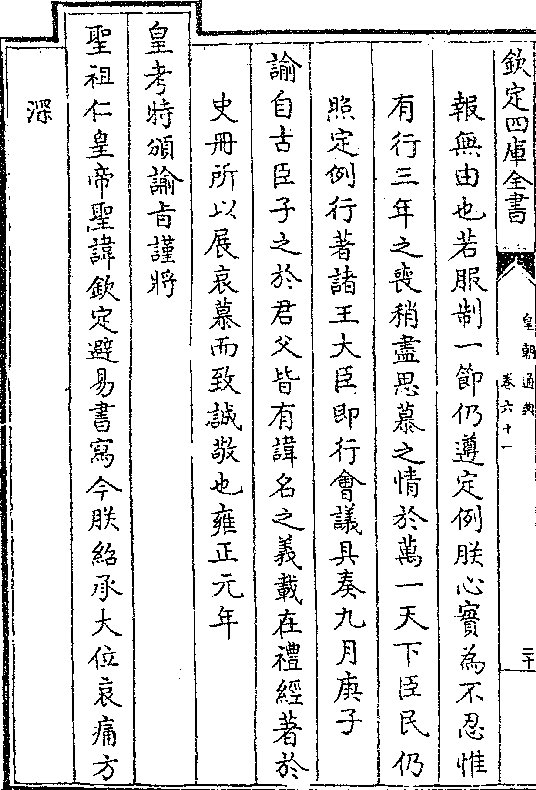 欽定四庫全書
皇朝通典
卷六十一
二十
報無由也若服制一節仍遵定例朕心實為不忍惟
有行三年之喪稍盡思慕之情於萬一天下臣民仍
照定例行著諸王大臣即行會議具奏九月庚子
諭自古臣子之於君父皆有諱名之義載在禮經著於
史冊所以展哀慕而致誠敬也雍正元年
皇考特頒諭旨謹將
聖祖仁皇帝聖諱欽定避易書寫今朕紹承大位哀痛方
深